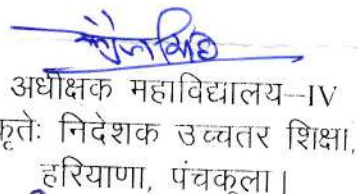 अधीक्षक महाविद्यालय–IV
कृतेः निदेशक उच्चतर शिक्षा,
हरियाणा, पंचकूला।